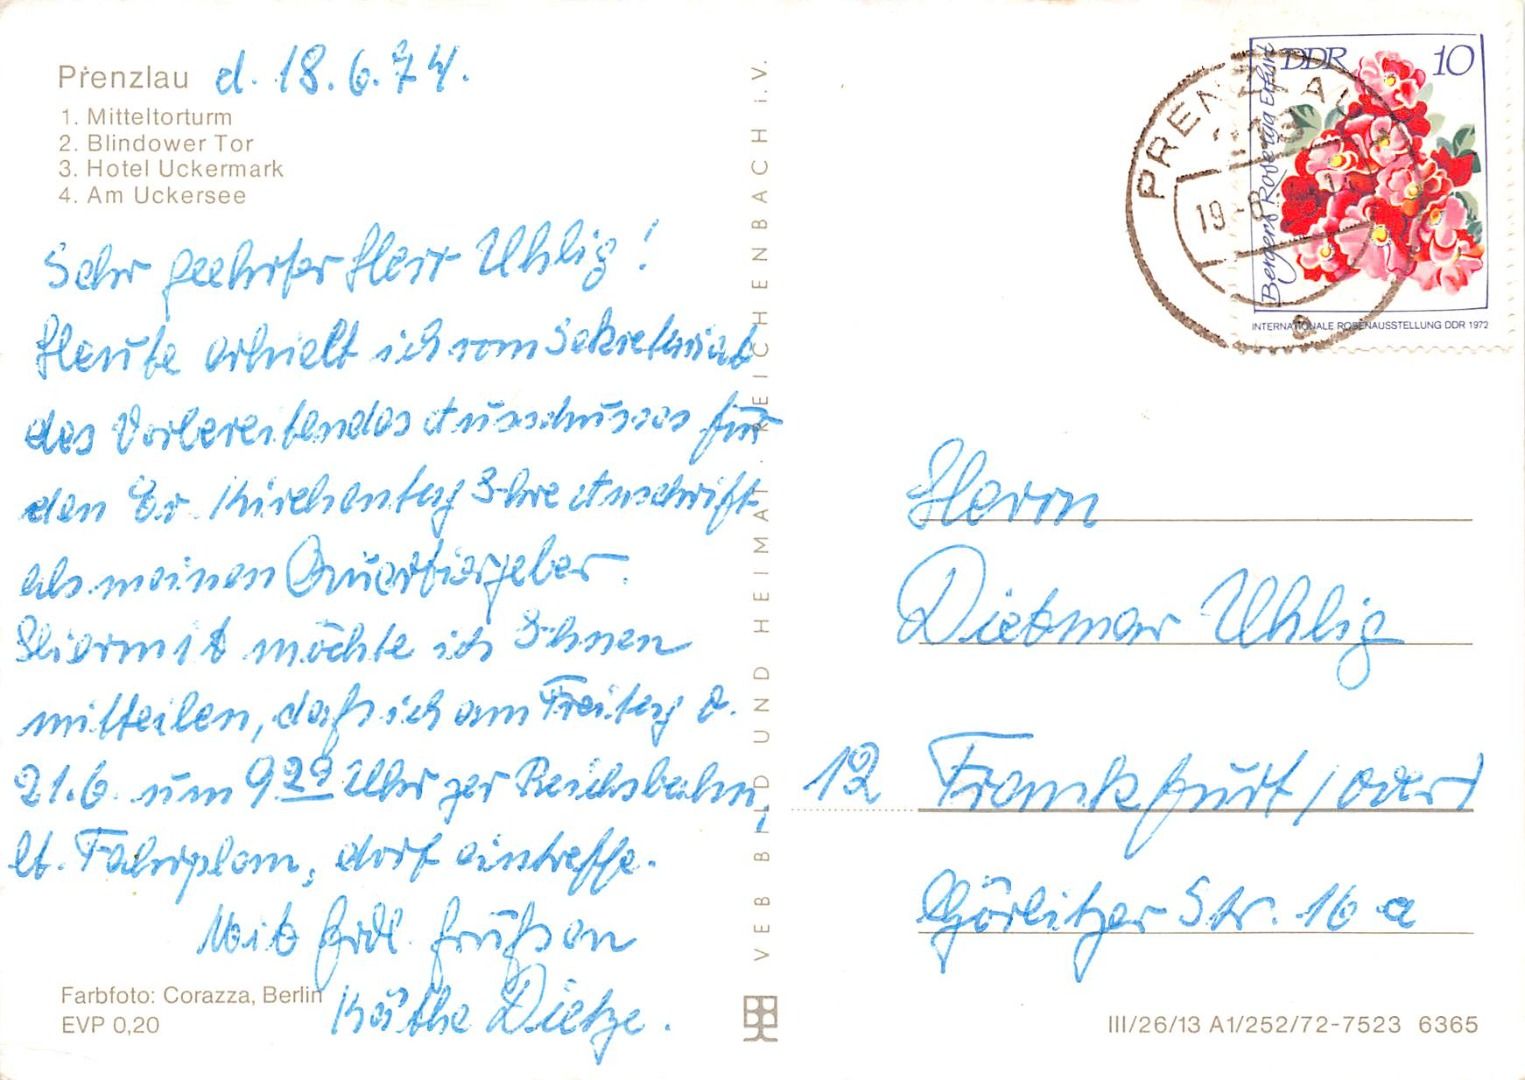 Prenzlau d. 18.6.74.
1. Mitteltorturm
2. Blindower Tor
3. Hotel Uckermark
4. Am Uckersee
Sehr geehrter Herr Uhlig!
Heute erhielt ich vom Sekretariat
des Vorbereitendes Ausschusses für
den Ev. Kirchentag Ihre Anschrift
als meinen Quartiergeber.
Hiermit möchte ich Ihnen
mitteilen, daß ich am Freitag d.
21.6. um 9 29 Uhr per Reichsbahn,
lt. Fahrplan, dort eintreffe.
Mit frdl. Grüßen
Käthe Dietze.
Farbfoto: Corazza, Berlin
EVP 0,20
VEB BILD UND HEIMAT REICHENBACH i.V.
DDR 10
Bergers Rose Erfurt
INTERNATIONALE ROSENAUSSTELLUNG DDR 1972
PRENZLAU
19.-6.
a
Herrn
Dietmar Uhlig
12 Frankfurt/Oder
Görlitzer Str. 16 a
III/26/13 A1/252/72-7523 6365